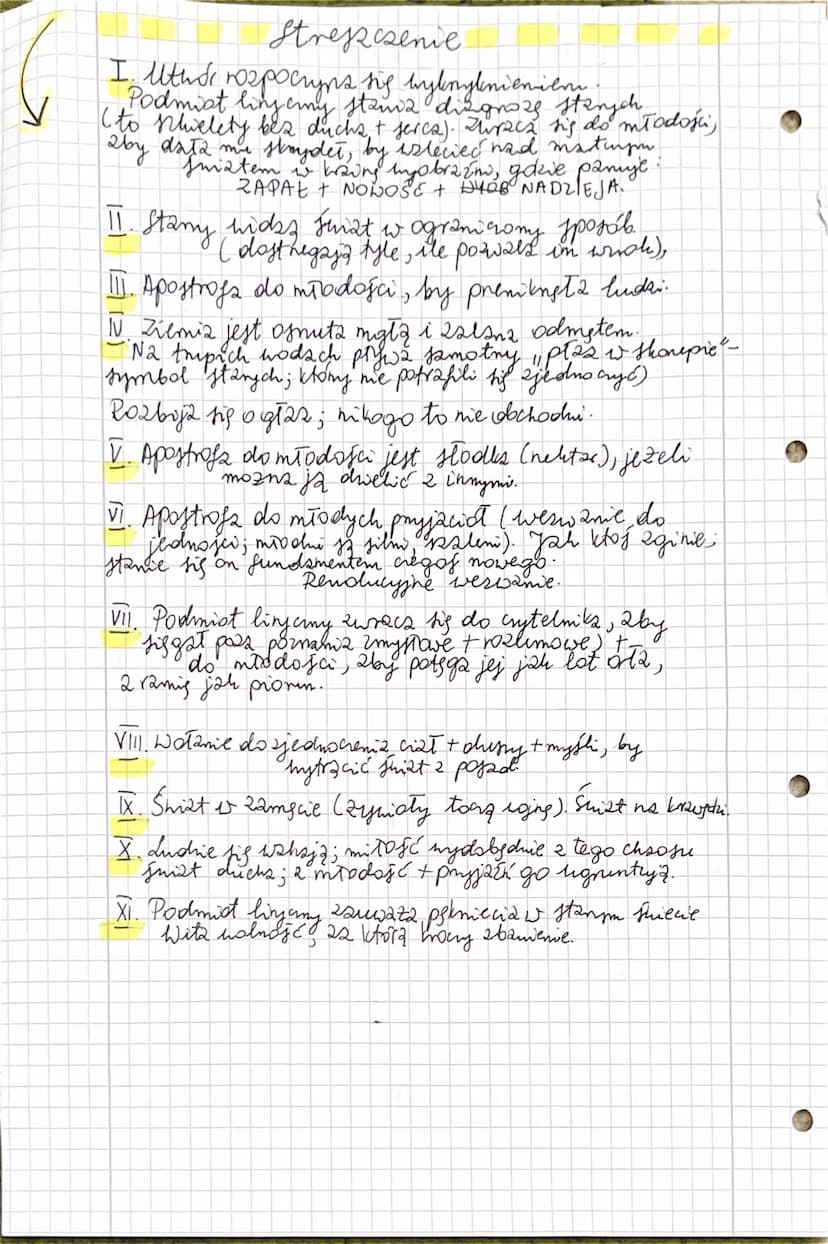 Streszczenie
I. Utwór rozpoczyna się wykrzyknieniem.
Podmiot liryczny stawia diagnozę starych
(to szkielety bez ducha + serca). Zwraca się do młodości,
aby dała mu skrzydeł, by wzlecieć nad martwym
światem w krainę wyobraźni, gdzie panuje:
ZAPAŁ + NOWOŚĆ + NADZIEJA.
II. Starzy widzą świat w ograniczony sposób
(dostrzegają tyle, ile pozwala im wzrok),
III. Apostrofa do młodości, by przeniknęła ludzi.
IV Ziemia jest osnuta mgłą i zalana odmętem.
Na trupich wodach pływa samotny „płaz w skorupie" -
symbol starych; którzy nie potrafili się zjednoczyć)
Rozbija się o głaz; nikogo to nie obchodzi.
V. Apostrofa do młodości jest słodka (nektar), jeżeli
można ją dzielić z innymi.
VI. Apostrofa do młodych przyjaciół (wezwanie do
jedności; młodzi są silni, szaleni). Jak ktoś zginie;
stanie się on fundamentem czegoś nowego.
Rewolucyjne wezwanie.
VII. Podmiot liryczny zwraca się do czytelnika, aby
sięgał poza poznania zmysłowe + rozumowe) +
do młodości, aby potęga jej jak lot orła,
a ramię jak piorun.
VIII. Wołanie do zjednoczenia ciał + duszy + myśli, by
wytrącić świat z posad.
IX. Świat w zamęcie (żywioły toczą wojnę). Świat na krawędzi.
X. Ludzie się wahają; miłość wydobędzie z tego chaosu
świat ducha; a młodość + przyjaźń go ugruntują.
XI. Podmiot liryczny zauważa pęknięcia w starym świecie
Wita wolność, za którą kroczy zbawienie.